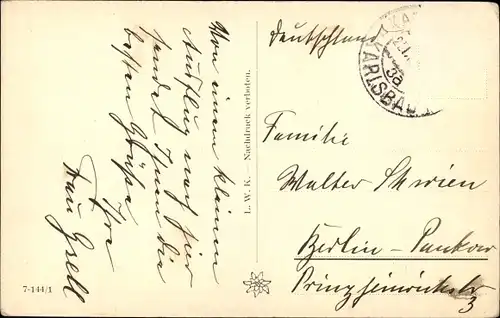 Von einem kleinen
Ausflug nach hier
sendet Ihnen die
besten Grüße
Ihre
Frau Gsell
7-144/1
L. W. K. - Nachdruck verboten.
Deutschland
KARLSBAD
3a
Familie
Walter Schwien
Berlin-Pankow
Prinz Heinrichstr
3